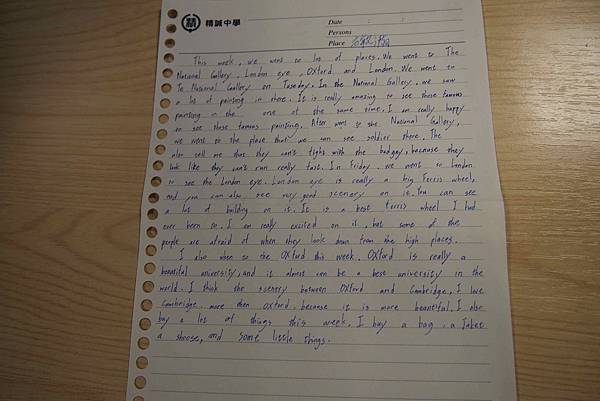 精誠中學
Date : :
Persons
Place
This week, we went so lot of places. We went to The
National Gallery. London eye, Oxford and London. We went to
To National Gallery on Tuseday. In the National Gallery. we saw
a lot of painting in there. It is really amazing to see those famous
painting in the one of the same time. I am really happy
to see those famous painting. After went to the National Gallery,
we went to the place that we can see soldier there. The
also tell me that they can't fight with the badgay, because they
look like they can't run really fast. In Friday we went to London
to see the London eye. London eye is really a big Ferris wheel,
and you can also see very good scenery on it. You can see
a lot of building on it. It is a best ferris wheel I had
ever been to. I am really excited on it. but some of the
people are afraid of when they look down from the high places.
I also when to the Oxford this week. Oxford is really a
beautiful university, and it almost can be a best university in the
world. I think the scenery between Oxford and Cambridge, I love
Cambridge more then oxford. because it is more beautiful. I also
buy a lot of things this week. I buy a bag. a Jaket
a shoose, and some little things.